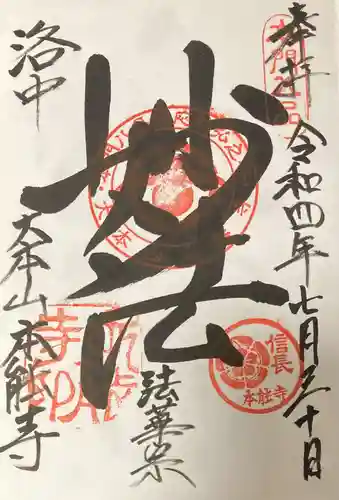 奉拝
令和四年七月三十日
妙法
法華宗
信長
本能寺
洛中
大本山本能寺